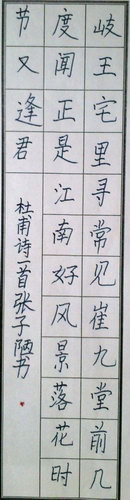 岐王宅里寻常见崔九堂前几
度闻正是江南好风景落花时
节又逢君
杜甫诗一首张子陋书